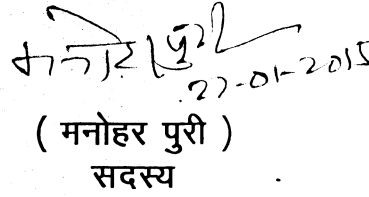 मनोहर पुरी
27-01-2015
( मनोहर पुरी )
सदस्य